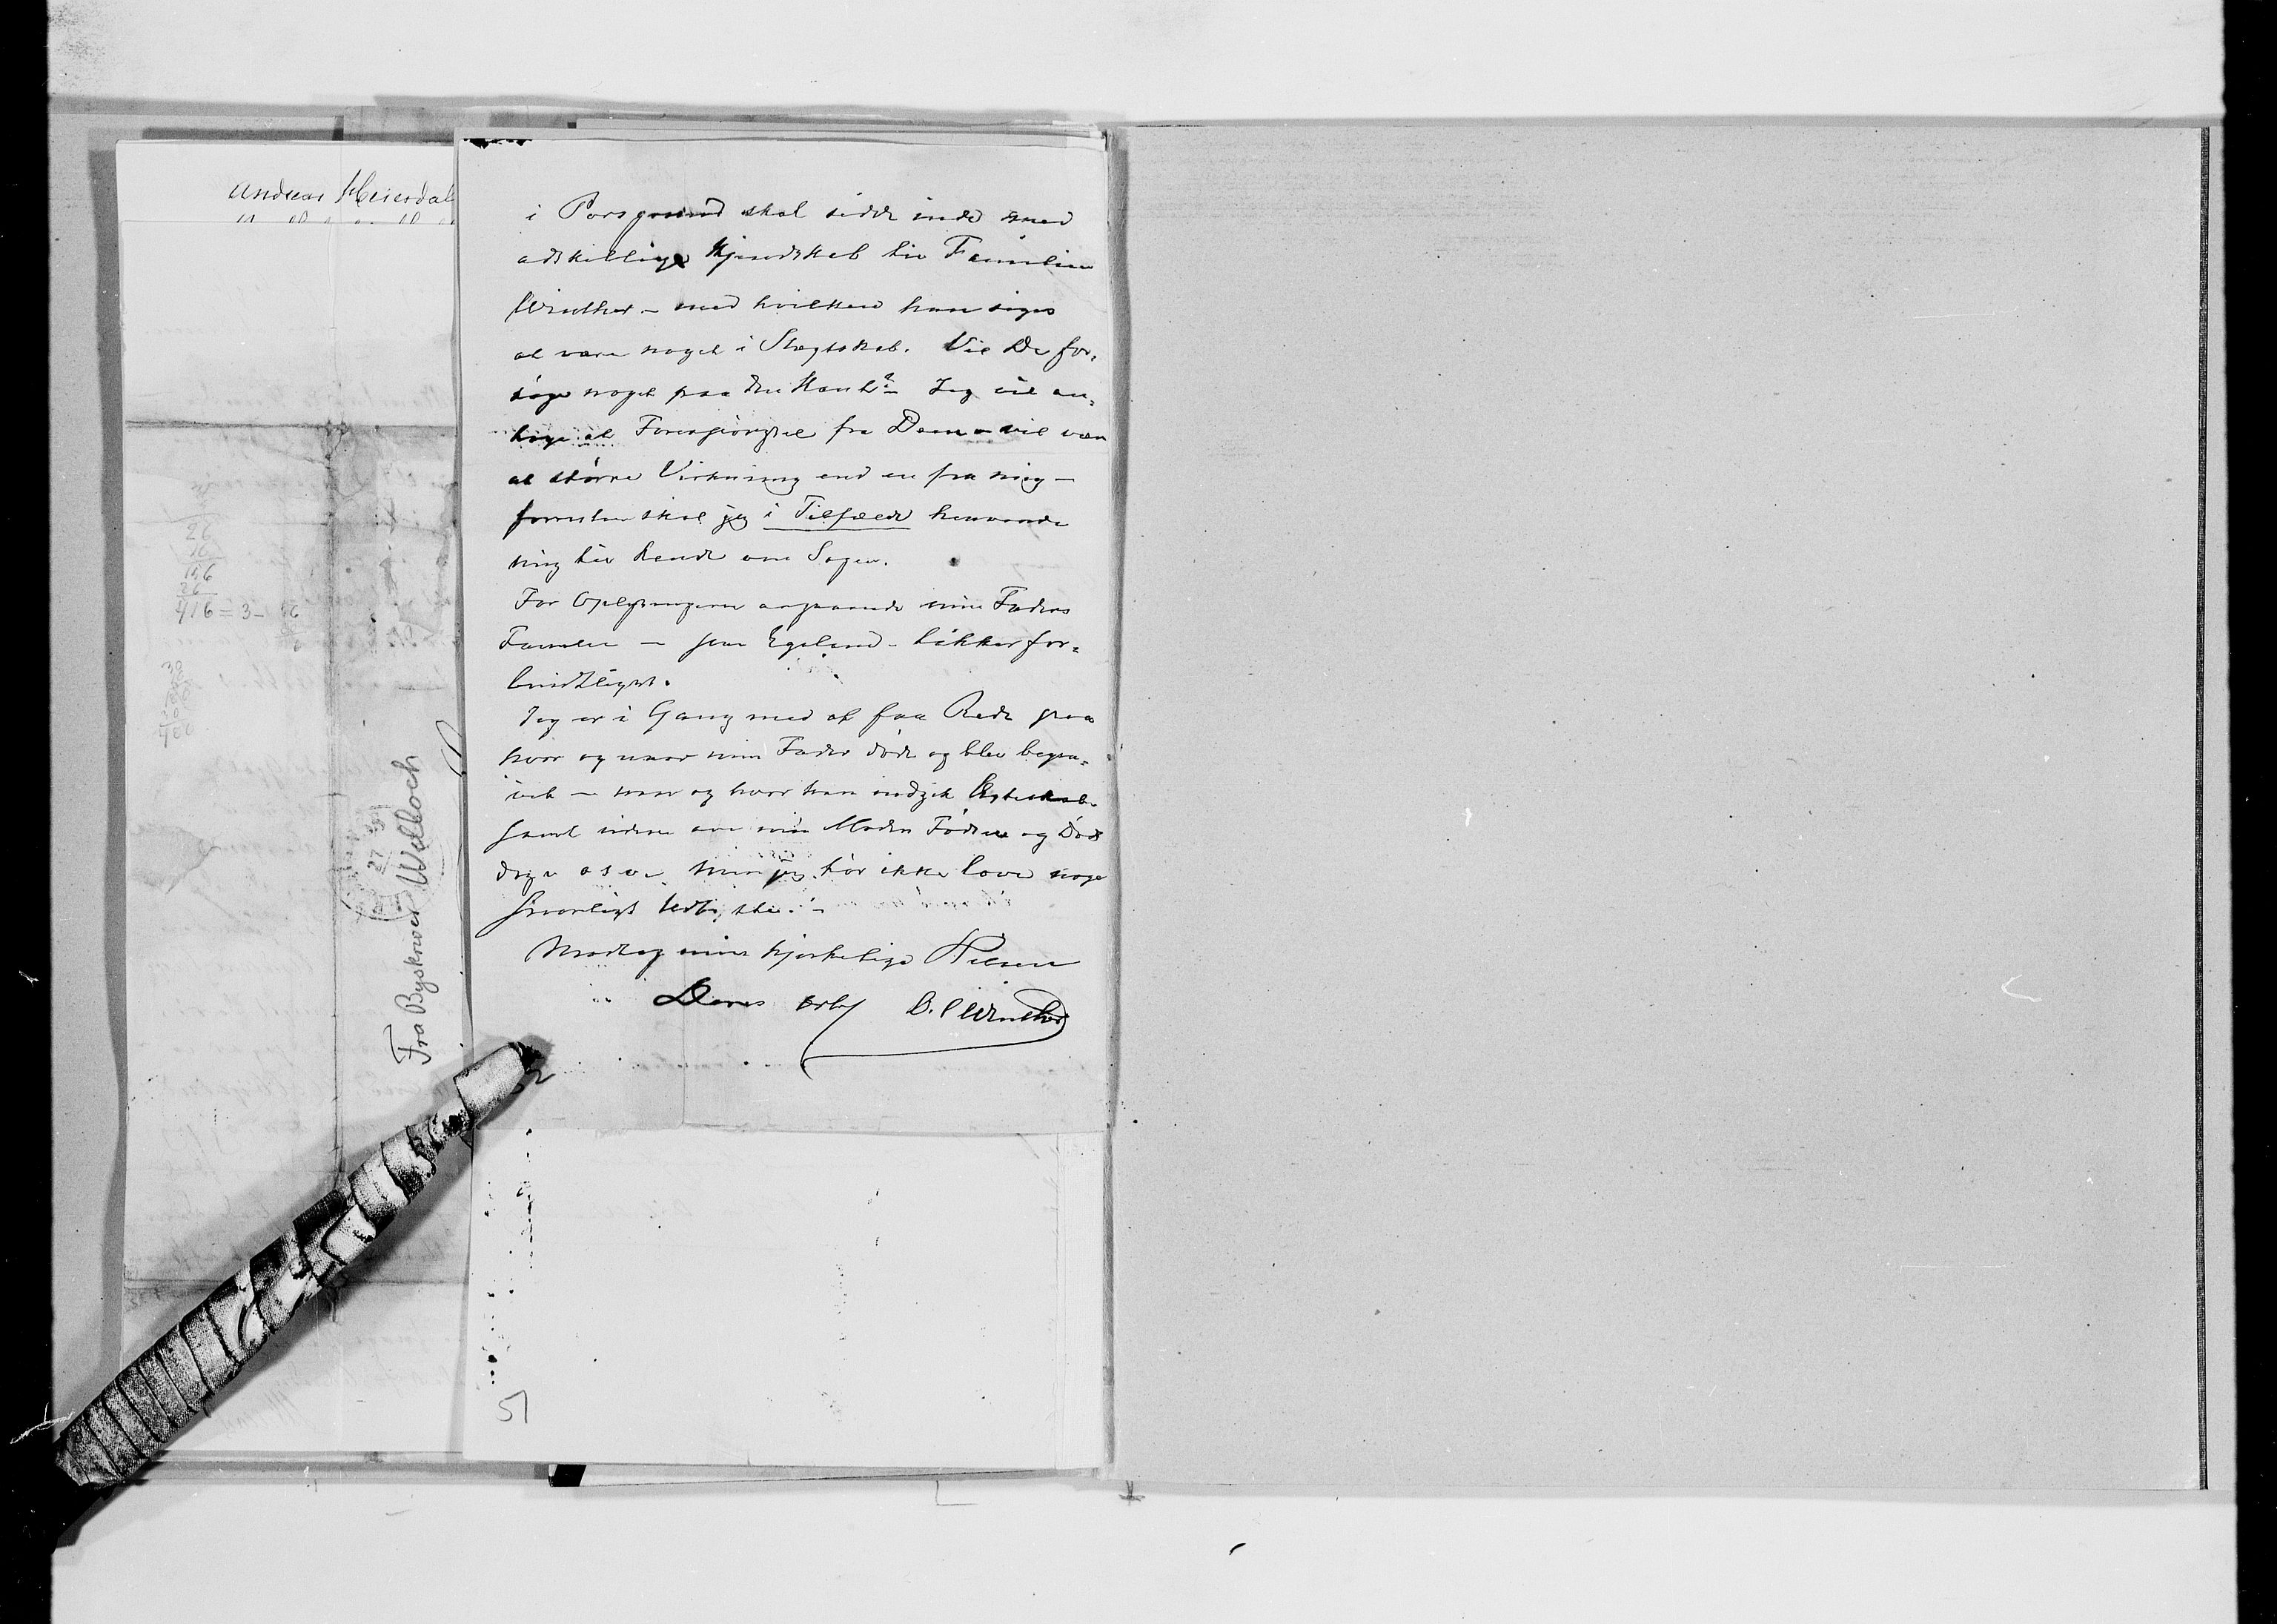 Andreas Heierdal
i Porsgrund skal sidde inde med
adskillige Kjendskab til Familien
Winther – med hvilken han siges
at være noget i Slægtskab. Vil De for=
søge noget paa den Kant? – Jeg vil an=
tage at Forespørgsel fra Dem – vil være
af større Virkning end en fra mig –
forresten skal jeg i Tilfælde henvende
mig til Rende om Sagen.
For Oplysningerne angaaende min Faders
Familie – fra Egelund – takker for=
bindtligst.
Jeg er i Gang med at faa Rede paa
hvor og naar min Fader døde og blev begra=
vet – naar og hvor han indgik Ægteskab
samt videre om min Moders Fødsel og Døds
dage osv. Men jeg tør ikke love noget
synderligt Udbytte. –
Modtag min hjertelige Hilsen
Deres erb. Winther
Fra Byskriver Wellboch
27
26
156
26
416 = 3 –
30
400
51